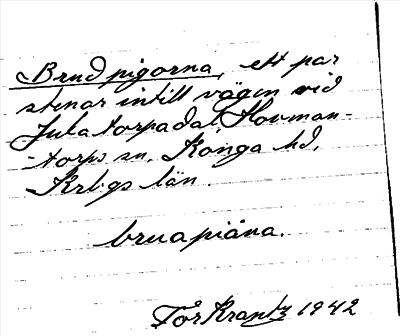 Brudpigorna, ett par
stenar intill vägen vid
Julatorpadal, Hovman-
-torps sn, Konga hd,
Krbgs län.
bruapiäna.
Tor Krantz 1942